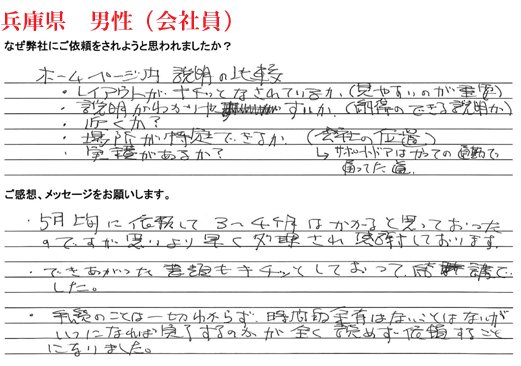 兵庫県　男性（会社員）
なぜ弊社にご依頼をされようと思われましたか？
ホームページ内 説明の比較
・レイアウトがキチッとなされているか、(見やすいのが重要)
・説明がわかりやすいか、(納得のできる説明か)
・近くか？
・場所が特定できるか、(会社の位置)
・実績があるか？ ↳サポートドアはかつての通勤で
通ってた道。
ご感想、メッセージをお願いします。
・5月上旬に依頼して3〜4ヶ月はかかると思っておった
のですが思いより早く処理され感謝しております。
・できあがった書類もキチッとしておって、感謝で
した。
・手続のことは一切わからず、時間的余裕はないことはないが
いつになれば完了するのかが全く読めず依頼すること
になりました。